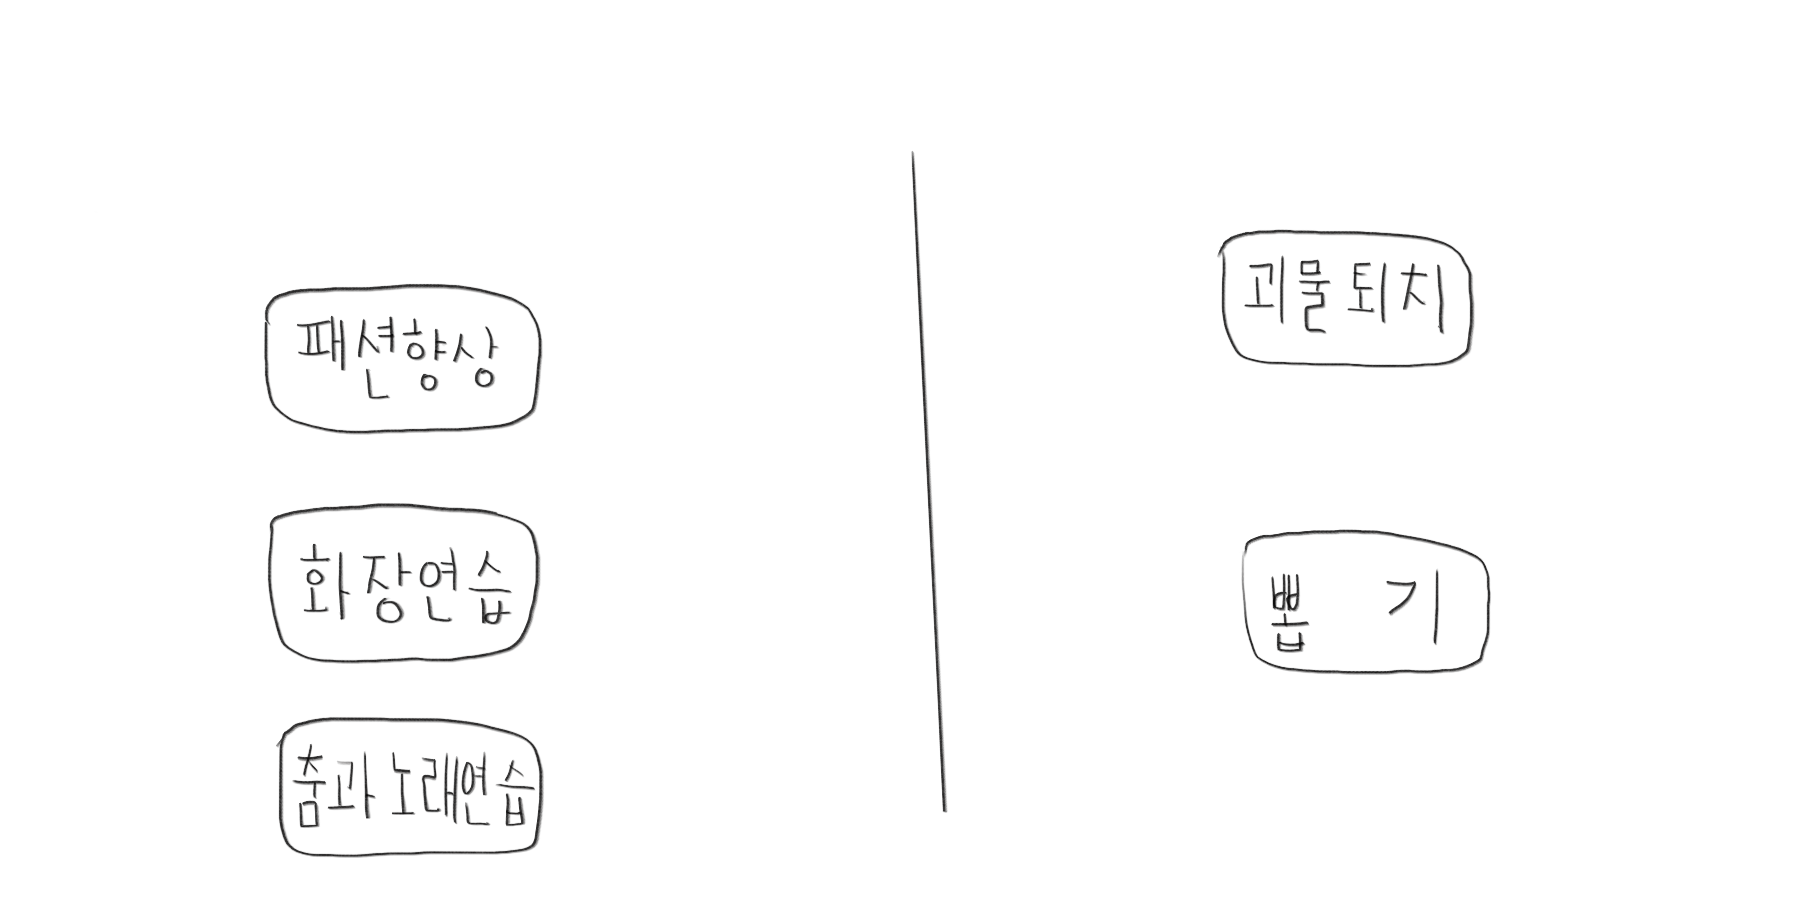 패션향상
화장연습
춤과 노래연습
괴물퇴치
뽑 기